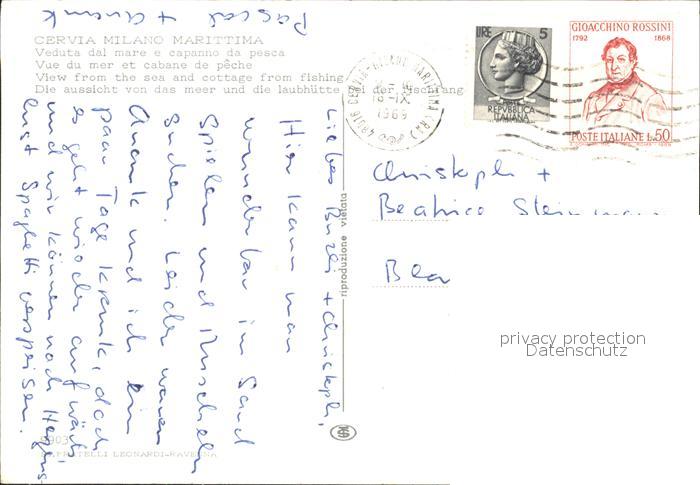 CERVIA MILANO MARITTIMA
Veduta dal mare e capanno da pesca
Vue du mer et cabane de pêche
View from the sea and cottage from fishing
Die aussicht von das meer und die laubhütte bei der fischfang
LIRE 5
REPVBBLICA
ITALIANA
GIOACCHINO ROSSINI
1792 1868
POSTE ITALIANE L.50
48016 CERVIA-MILANO MARITTIMA (RA)
-IX
1969
Liebes Burzi + Christoph,
Hier kann man
wunderbar im Sand
Spielen und Muscheln
suchen. Leider waren
Anank und ich ein
paar Tage krank, doch
es geht wieder aufwärts
und wir können nach Herzens-
lust Spaghetti verspeisen.
Pascal
+ Anank
Christoph +
Beatrice
riproduzione vietata
FRATELLI LEONARDI-RAVENNA
privacy protection
Datenschutz